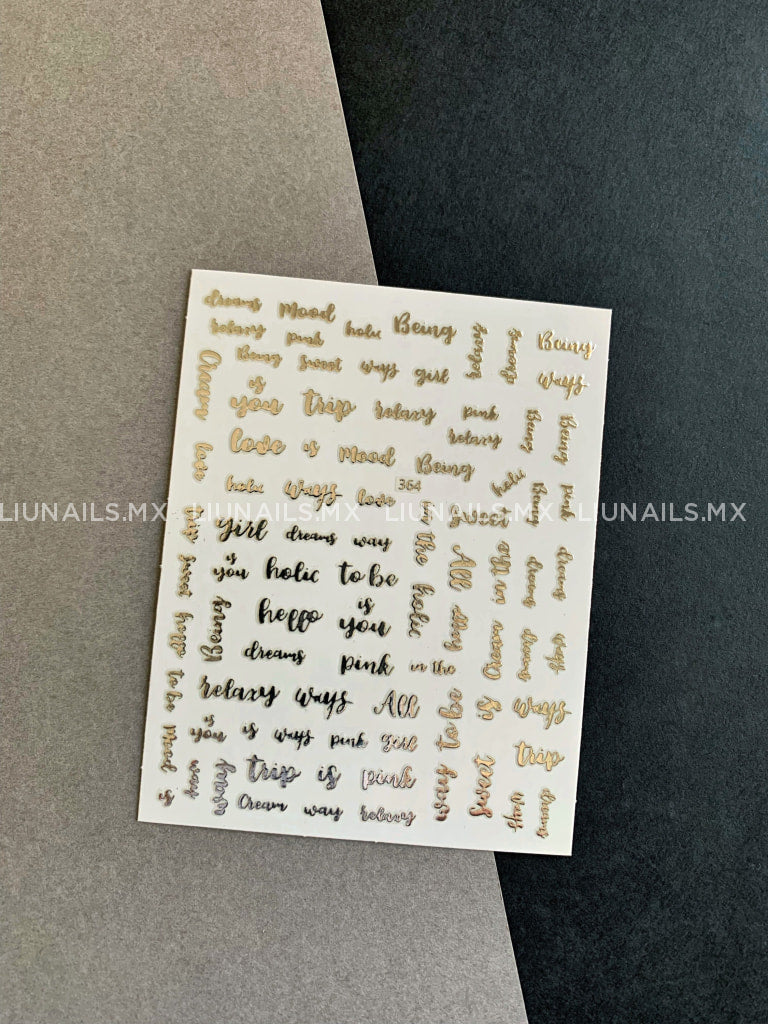 dreams Mood Being
relaxy pink holic relaxy dreams Being
Being Sweet ways girl ways
Cream is
you trip relaxy pink Being Being
relaxy
love love is Mood Being
364 holic
holic ways love in the Being pink
LIUNAILS.MX LIUNAILS.MX LIUNAILS.MX LIUNAILS.MX
girl dreams way All dreams dreams
is
you holic to be holic
sweet heppo is
heppo you Cream dreams ways
dreams pink in the
to be relaxy ways All way to be is ways
is
you is ways pink girl trip
Mood trip is pink Sweet
is way Cream way relaxy ways dreams